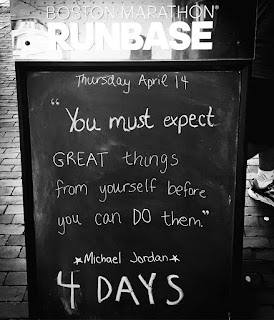 BOSTON MARATHON®
RUNBASE
Thursday April 14
"You must expect
GREAT things
from yourself before
you can DO them."
★Michael Jordan★
4 DAYS